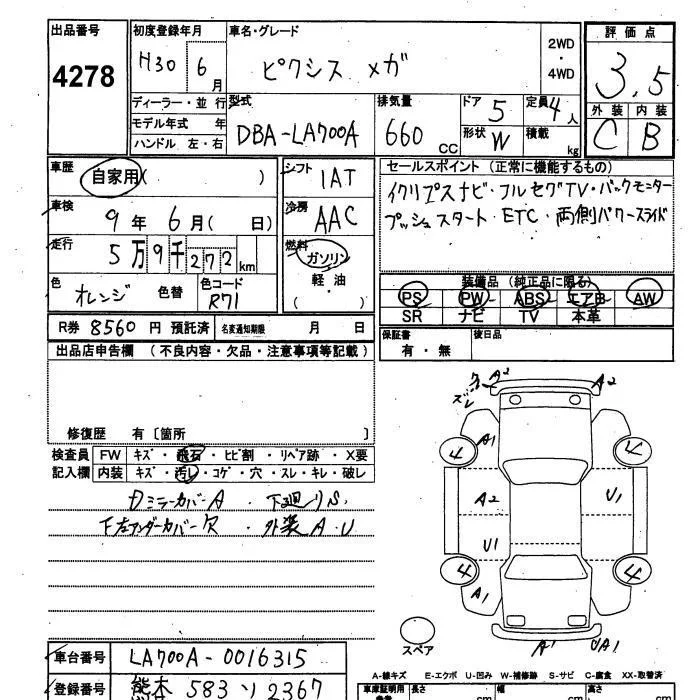 出品番号
4278
初度登録年月
H30 6月
車名・グレード
ピクシス メガ
2WD
・
4WD
評価点
3.5
外装 内装
C B
ディーラー・並行
モデル年式 年
ハンドル 左・右
型式
DBA-LA700A
排気量
660 CC
ドア 5
定員 4人
形状 W
積載 kg
車歴
自家用( )
車検
9年 6月( 日)
走行
5万9千272km
色
オレンジ 色替
色コード
R71
シフト
IAT
冷房
AAC
燃料
ガソリン
軽油
( )
セールスポイント (正常に機能するもの)
イクリプスナビ・フルセグTV・バックモニター
プッシュスタート・ETC・両側パワースライド
装備品 (純正品に限る)
PS PW ABS エアB AW
SR ナビ TV 本革
R券 8560円 預託済
名変通知期限 月 日
保証書
有・無
後日品
出品店申告欄 (不良内容・欠品・注意事項等記載)
修復歴 有〔箇所 〕
検査員
記入欄
FW キズ・飛石・ヒビ割・リペア跡・X要
内装 キズ・汚レ・コゲ・穴・スレ・キレ・破レ
Dミラーカバー A ・ 下廻り S.
F左アンダーカバー欠 ・ 外装 A・U
ズレ
A2 A2
A1
4 4
A2 U1
U1
4 4
A1
A1 UA1
スペア
車台番号
LA700A-0016315
登録番号
熊本 583 ソ 2367
A-線キズ E-エクボ U-凹み W-補修跡 S-サビ C-腐食 XX-取替済
車庫証明用
長さ cm
幅 cm
高さ cm